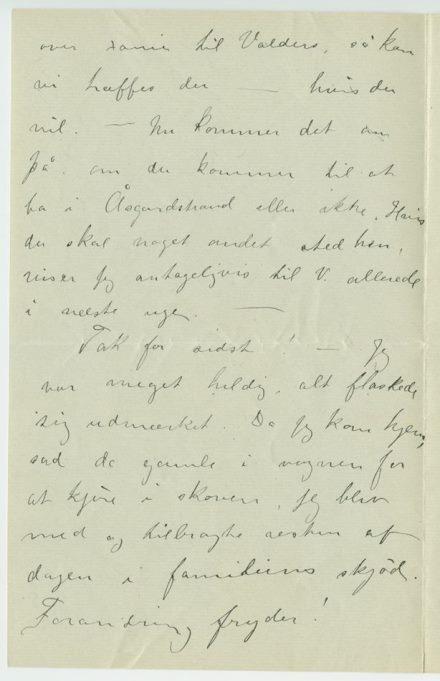 over samme til Valders, så kan
vi træffes der — hvis du
vil. — Nu kommer det an
på, om du kommer til at
bo i Åsgårdstrand eller ikke. Hvis
du skal noget andet sted hen,
reiser jeg antageligvis til V. allerede
i næste uge. —
Tak for sidst! — Jeg
var meget heldig, alt flaskede
sig udmærket. Da jeg kom hjem,
sad de gamle i vognen for
at kjøre i skoven, jeg blev
med og tilbragte resten af
dagen i familiens skjød.
Forandring fryder!